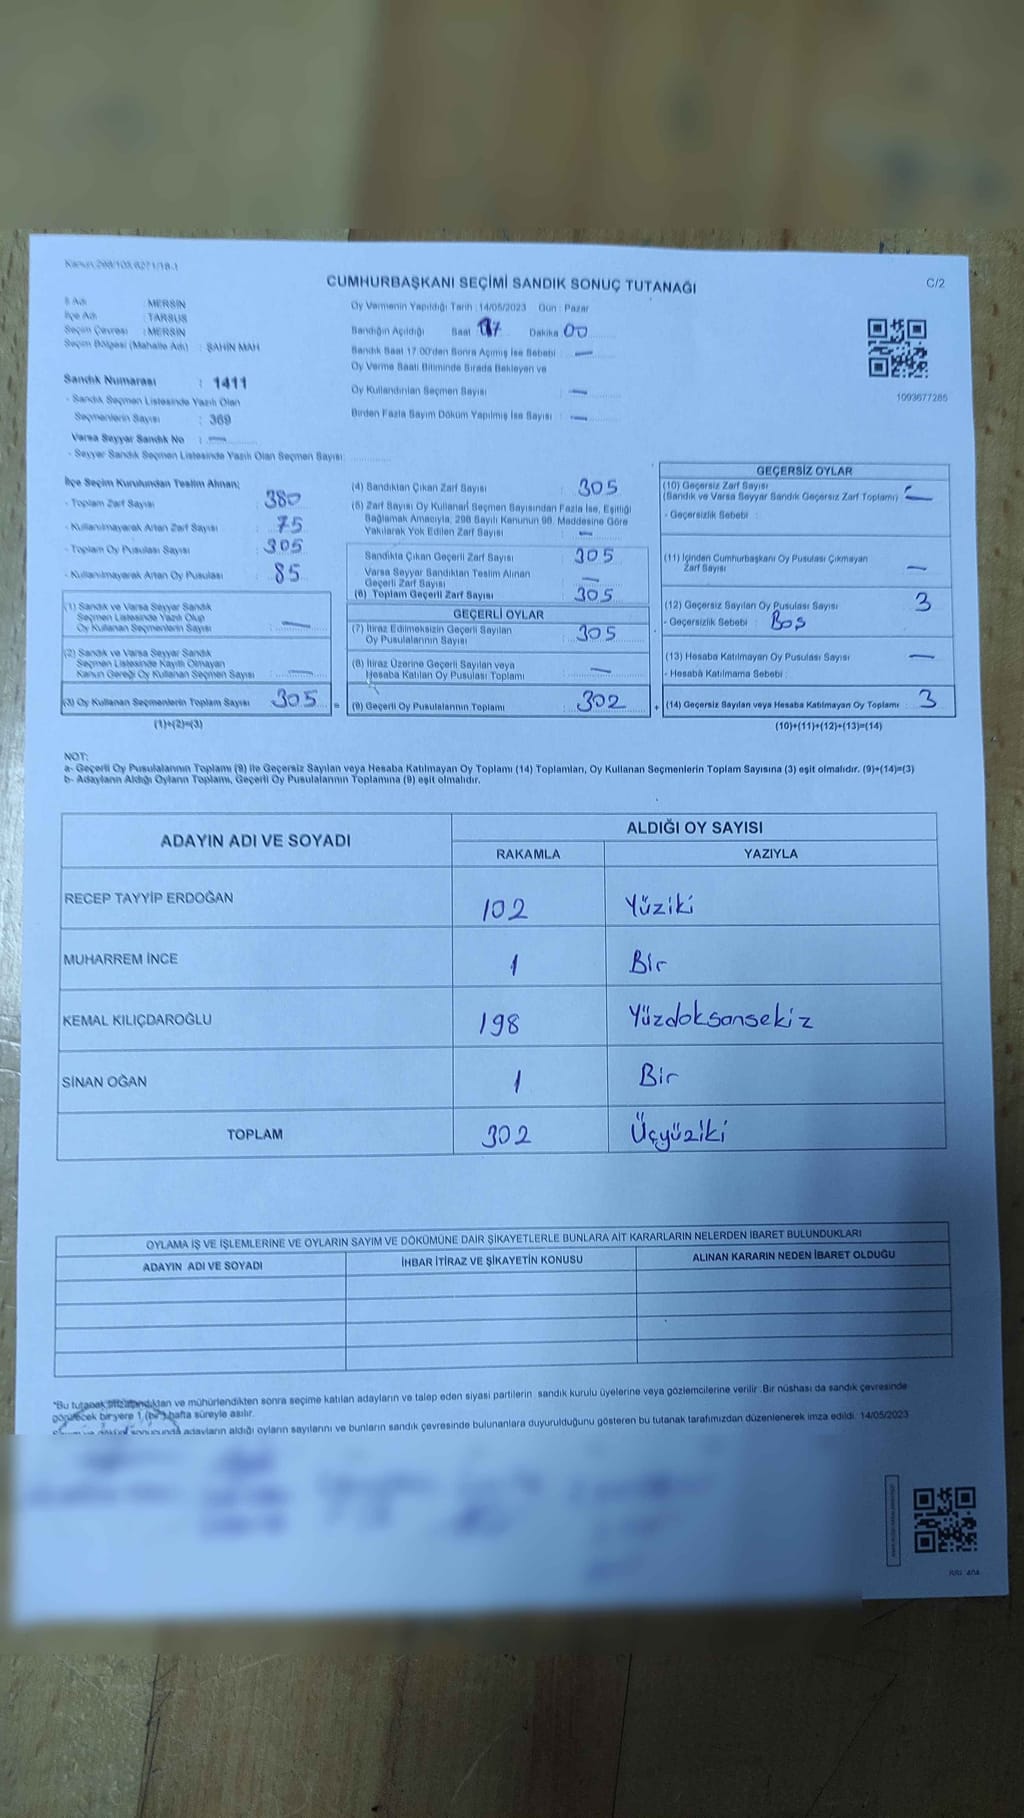 Kanun:298/103,6271/18-1
CUMHURBAŞKANI SEÇİMİ SANDIK SONUÇ TUTANAĞI
C/2
İl Adı : MERSİN
İlçe Adı : TARSUS
Seçim Çevresi : MERSİN
Seçim Bölgesi (Mahalle Adı) : ŞAHİN MAH
Sandık Numarası : 1411
- Sandık Seçmen Listesinde Yazılı Olan
Seçmenlerin Sayısı : 369
Varsa Seyyar Sandık No : —
- Seyyar Sandık Seçmen Listesinde Yazılı Olan Seçmen Sayısı:
Oy Vermenin Yapıldığı Tarih :14/05/2023 Gün : Pazar
Sandığın Açıldığı Saat 17 Dakika 00
Sandık Saat 17:00'den Sonra Açımış İse Sebebi : —
Oy Verme Saati Bitiminde Sırada Bekleyen ve
Oy Kullandırılan Seçmen Sayısı : —
Birden Fazla Sayım Döküm Yapılmış İse Sayısı : —
1093677285
İlçe Seçim Kurulundan Teslim Alınan;
- Toplam Zarf Sayısı : 380
- Kullanılmayarak Artan Zarf Sayısı : 75
- Toplam Oy Pusulası Sayısı : 305
- Kullanılmayarak Artan Oy Pusulası : 85
(1) Sandık ve Varsa Seyyar Sandık
Seçmen Listesinde Yazılı Olup
Oy Kullanan Seçmenlerin Sayısı : —
(2) Sandık ve Varsa Seyyar Sandık
Seçmen Listesinde Kayıtlı Olmayan
Kanun Gereği Oy Kullanan Seçmen Sayısı : —
(3) Oy Kullanan Seçmenlerin Toplam Sayısı : 305 =
(1)+(2)=(3)
(4) Sandıktan Çıkan Zarf Sayısı : 305
(5) Zarf Sayısı Oy Kullanan Seçmen Sayısından Fazla İse, Eşitliği
Bağlamak Amacıyla, 298 Sayılı Kanunun 98. Maddesine Göre
Yakılarak Yok Edilen Zarf Sayısı : —
Sandıkta Çıkan Geçerli Zarf Sayısı : 305
Varsa Seyyar Sandıktan Teslim Alınan
Geçerli Zarf Sayısı : —
(6) Toplam Geçerli Zarf Sayısı : 305
GEÇERLİ OYLAR
(7) İtiraz Edilmeksizin Geçerli Sayılan
Oy Pusulalarının Sayısı : 305
(8) İtiraz Üzerine Geçerli Sayılan veya
Hesaba Katılan Oy Pusulası Toplamı : —
(9) Geçerli Oy Pusulalarının Toplamı : 302 +
GEÇERSİZ OYLAR
(10) Geçersiz Zarf Sayısı
(Sandık ve Varsa Seyyar Sandık Geçersiz Zarf Toplamı) : —
- Geçersizlik Sebebi :
(11) İçinden Cumhurbaşkanı Oy Pusulası Çıkmayan
Zarf Sayısı : —
(12) Geçersiz Sayılan Oy Pusulası Sayısı : 3
- Geçersizlik Sebebi : Boş
(13) Hesaba Katılmayan Oy Pusulası Sayısı : —
- Hesaba Katılmama Sebebi :
(14) Geçersiz Sayılan veya Hesaba Katılmayan Oy Toplamı : 3
(10)+(11)+(12)+(13)=(14)
NOT:
a- Geçerli Oy Pusulalarının Toplamı (9) ile Geçersiz Sayılan veya Hesaba Katılmayan Oy Toplamı (14) Toplamları, Oy Kullanan Seçmenlerin Toplam Sayısına (3) eşit olmalıdır. (9)+(14)=(3)
b- Adayların Aldığı Oyların Toplamı, Geçerli Oy Pusulalarının Toplamına (9) eşit olmalıdır.
ADAYIN ADI VE SOYADI ALDIĞI OY SAYISI
RAKAMLA YAZIYLA
RECEP TAYYİP ERDOĞAN 102 Yüziki
MUHARREM İNCE 1 Bir
KEMAL KILIÇDAROĞLU 198 Yüzdoksansekiz
SİNAN OĞAN 1 Bir
TOPLAM 302 Üçyüziki
OYLAMA İŞ VE İŞLEMLERİNE VE OYLARIN SAYIM VE DÖKÜMÜNE DAİR ŞİKAYETLERLE BUNLARA AİT KARARLARIN NELERDEN İBARET BULUNDUKLARI
ADAYIN ADI VE SOYADI İHBAR İTİRAZ VE ŞİKAYETİN KONUSU ALINAN KARARIN NEDEN İBARET OLDUĞU
*Bu tutanak imzalandıktan ve mühürlendikten sonra seçime katılan adayların ve talep eden siyasi partilerin sandık kurulu üyelerine veya gözlemcilerine verilir. Bir nüshası da sandık çevresinde
görülecek bir yere 1 (bir) hafta süreyle asılır.
sonucunda adayların aldığı oyların sayılarını ve bunların sandık çevresinde bulunanlara duyurulduğunu gösteren bu tutanak tarafımızdan düzenlenerek imza edildi. 14/05/2023